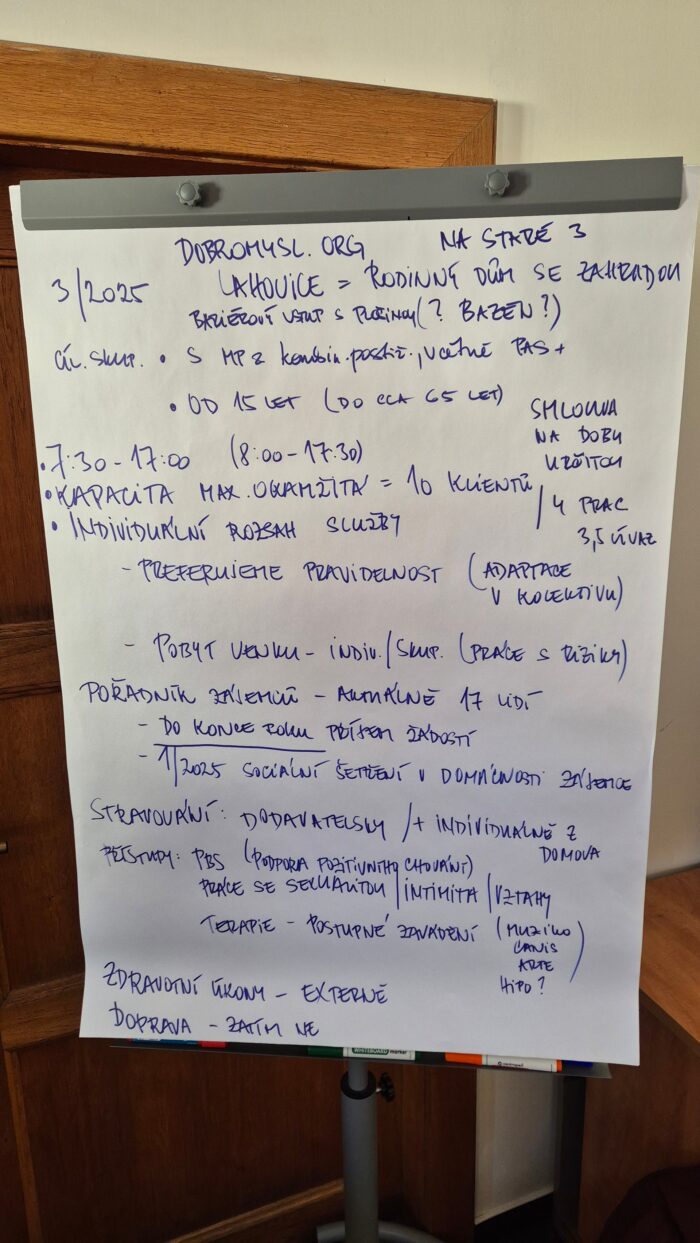 DOBROMYSL.ORG NA STARÉ 3
3/2025 LAHOVICE = RODINNÝ DŮM SE ZAHRADOU
BARIÉROVÝ VSTUP S PLOŠINOU (? BAZÉN?)
CÍL. SKUP. • S MP z kombin. postiž., včetně PAS +
• OD 15 LET (DO CCA 65 LET)
SMLOUVA
NA DOBU
URČITOU
• 7:30 - 17:00 (8:00 - 17:30)
• KAPACITA MAX. OKAMŽITÁ = 10 KLIENTŮ
/ 4 PRAC
3,5 ÚVAZ
• INDIVIDUÁLNÍ ROZSAH SLUŽBY
- PREFERUJEME PRAVIDELNOST (ADAPTACE
V KOLEKTIVU)
- POBYT VENKU - INDIV. / SKUP. (PRÁCE S RIZIKY)
POŘADNÍK ZÁJEMCŮ - AKTUÁLNĚ 17 LIDÍ
- DO KONCE ROKU PŘÍJEM ŽÁDOSTÍ
- 1/2025 SOCIÁLNÍ ŠETŘENÍ V DOMÁCNOSTI ZÁJEMCE
STRAVOVÁNÍ: DODAVATELSKY / + INDIVIDUÁLNĚ Z
DOMOVA
PŘÍSTUPY: PBS (PODPORA POZITIVNÍHO CHOVÁNÍ)
PRÁCE SE SEXUALITOU / INTIMITA / VZTAHY
TERAPIE - POSTUPNÉ ZAVÁDĚNÍ (MUZIKO
CANIS
ARTE
HIPO?)
ZDRAVOTNÍ ÚKONY - EXTERNĚ
DOPRAVA - ZATÍM NE
WHITEBOARD marker